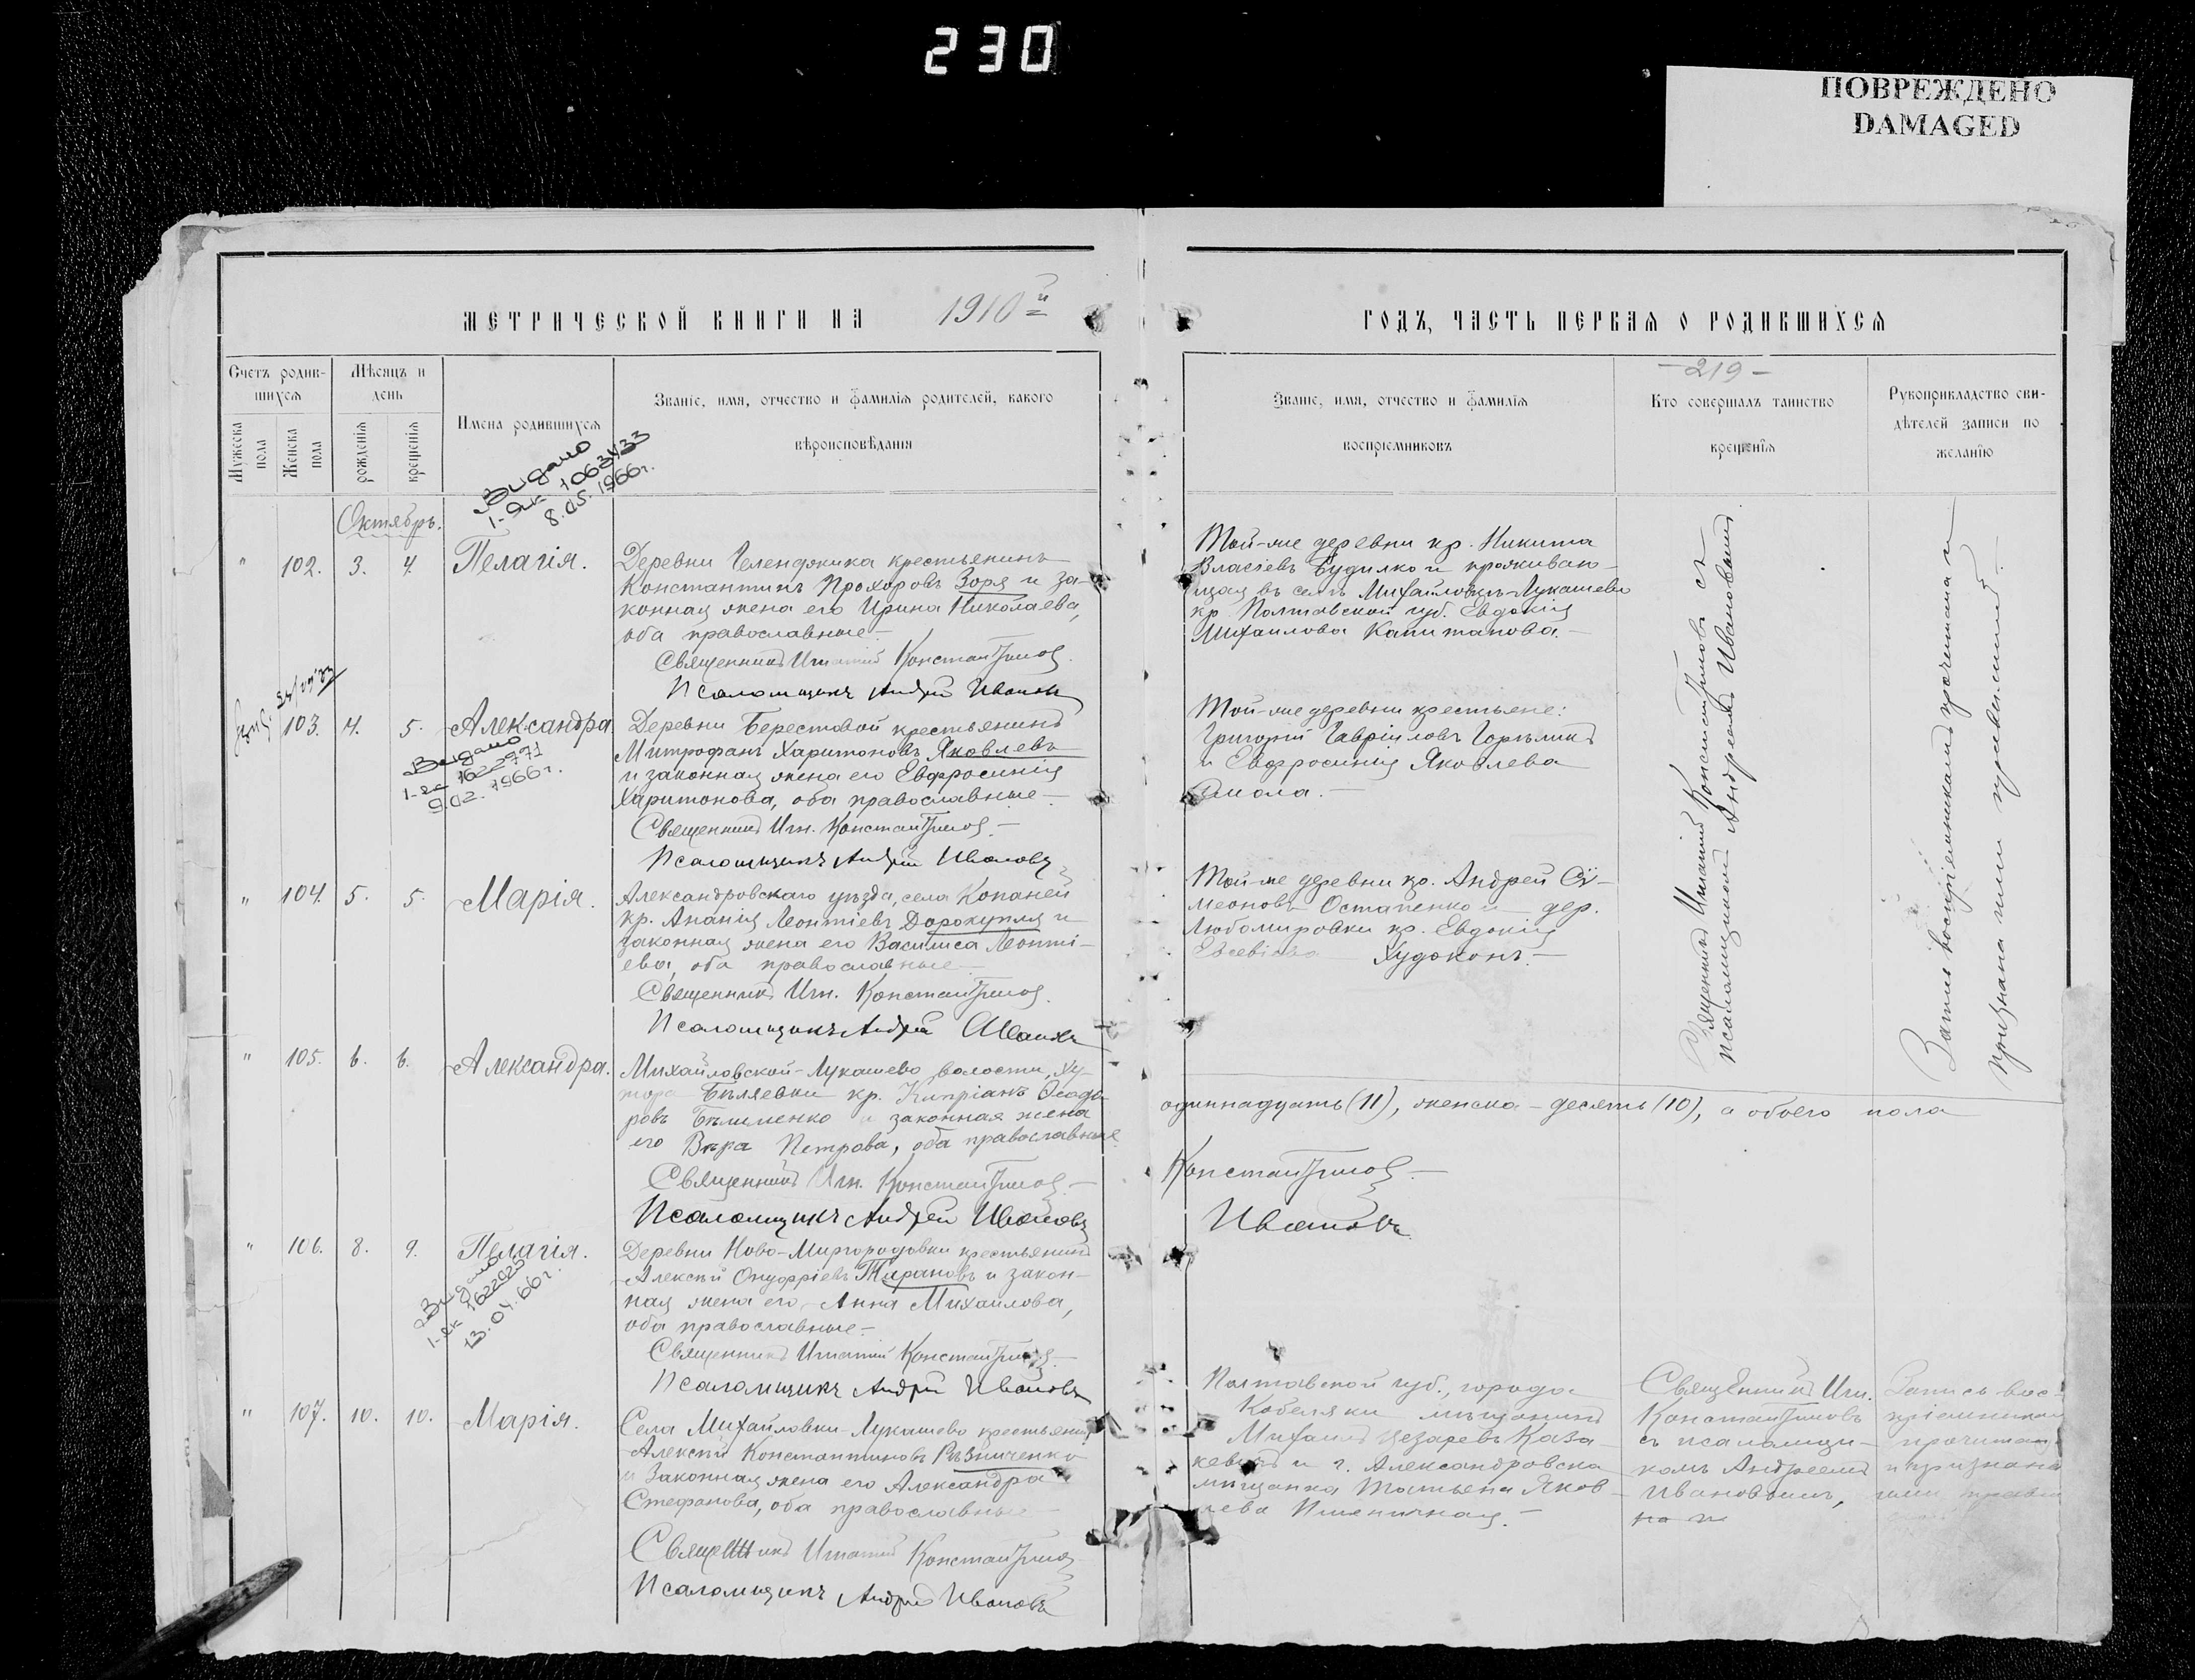 230
ПОВРЕЖДЕНО
DAMAGED
МЕТРИЧЕСКОЙ КНИГИ НА 1910й
Счетъ родив-
шихся
Мѣсяцъ и
день
Мужеска
пола
Женска
пола
рожденія
крещенія
Имена родившихся
Званіе, имя, отчество и фамилія родителей, какого
вѣроисповѣданія
Видано
1-ЯК 1063433
8.05.1966г.
Октябрь.
" 102. 3. 4. Пелагія.
Деревни Геленджика крестьянинъ
Константинъ Прохоровъ Зоря и за-
конная жена его Ирина Николаева,
оба православные.
Священникъ Игнатій Константиновъ.
Псаломщикъ Андрей Ивановъ
103. 4. 5. Александра
Видано
1622971
9.02.1966г.
Деревни Берестовой крестьянинъ
Митрофанъ Харитоновъ Яковлевъ
и законная жена его Евфросинія
Харитонова, оба православные.
Священникъ Игн. Константиновъ.
Псаломщикъ Андрей Ивановъ
" 104. 5. 5. Марія.
Александровскаго уѣзда, села Копаней
кр. Ананія Леонтіевъ Дорокупля и
законная жена его Василиса Леонті-
ева, оба православные
Священникъ Игн. Константиновъ.
Псаломщикъ Андрей Ивановъ
" 105. 6. 6. Александра.
Михайловской-Лукашево волости, ху-
тора Бѣляевки кр. Кипріанъ Ѳеодо-
ровъ Бѣлименко и законная жена
его Вѣра Петрова, оба православные
Священникъ Игн. Константиновъ.
Псаломщикъ Андрей Ивановъ
" 106. 8. 9. Пелагія.
Видано
1622025
13.04.66г.
Деревни Ново-Миргородовки крестьянинъ
Алексѣй Онуфріевъ Тирановъ и закон-
ная жена его Анна Михаилова,
оба православные.
Священникъ Игнатій Константиновъ.
Псаломщикъ Андрей Ивановъ
" 107. 10. 10. Марія.
Села Михайловки-Лукашево крестьянинъ
Алексѣй Константиновъ Рѣзниченко
и законная жена его Александра
Стефанова, оба православные
Священникъ Игнатій Константиновъ
Псаломщикъ Андрей Ивановъ
ГОДЪ, ЧАСТЬ ПЕРВАЯ О РОДИВШИХСЯ
-219-
Званіе, имя, отчество и фамилія
воспріемниковъ
Кто совершалъ таинство
крещенія
Рукоприкладство сви-
дѣтелей записи по
желанію
Той-же деревни кр. Никита
Власіевъ Будилко и прожива-
ющая въ селѣ Михайловкѣ-Лукашево
кр. Полтавской губ. Евдокія
Михаилова Капитанова.
Той-же деревни крестьяне:
Григорій Гавріиловъ Горѣликъ
и Евфросинія Яковлева
Той-же деревни кр. Андрей Сѵ-
меоновъ Остапенко и дер.
Любомировки кр. Евдокія
Евсевіева Худоконь.
Священникъ Игнатій Константиновъ съ
псаломщикомъ Андреемъ Ивановымъ
Запись воспріемникамъ прочитана и
признана ими правильной.
одиннадцать (11), женска - десять (10), а обоего пола
Константиновъ.
Ивановъ
Полтавской губ., города
Кобеляки мѣщанинъ
Михаилъ Цезаревъ Каза-
кевичъ и г. Александровска
мѣщанка Татьяна Яков-
лева Пшеничная.
Священникъ Игн.
Константиновъ
съ псаломщи-
комъ Андреемъ
Ивановымъ,
Запись вос-
пріемникамъ
прочитана
и признана
ими правиль